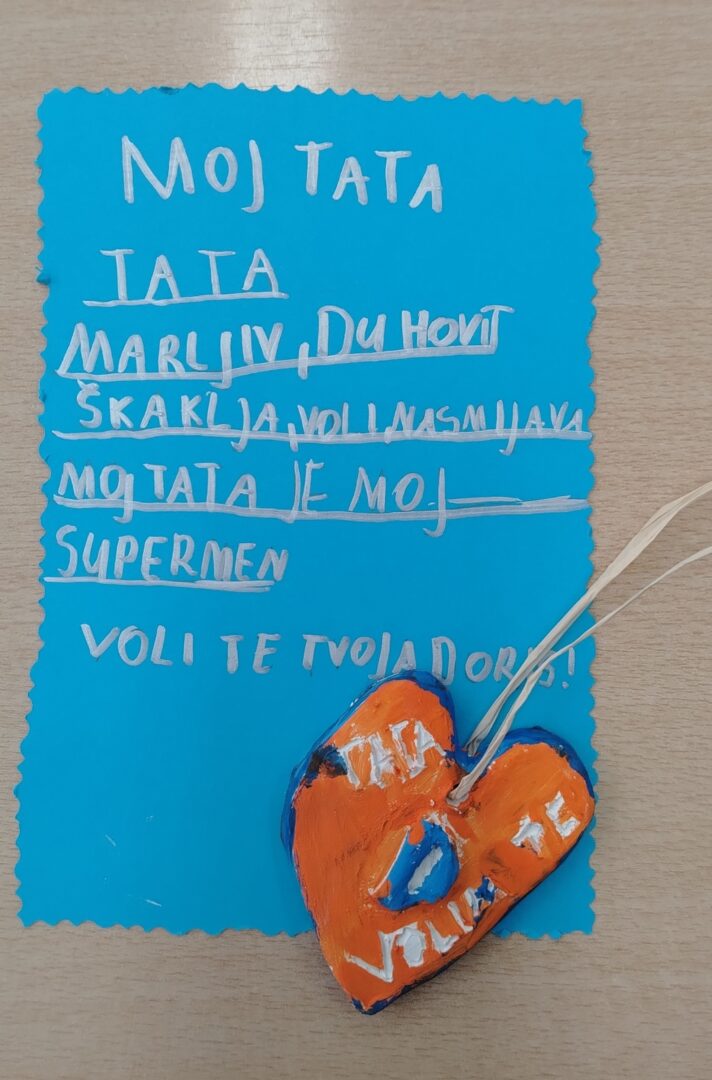 MOJ TATA
TATA
MARLJIV, DUHOVIT
ŠKAKLJA, VOLI, NASMIJAVA
MOJ TATA JE MOJ
SUPERMEN
VOLI TE TVOJA DORIS!
TATA
VOLIM TE